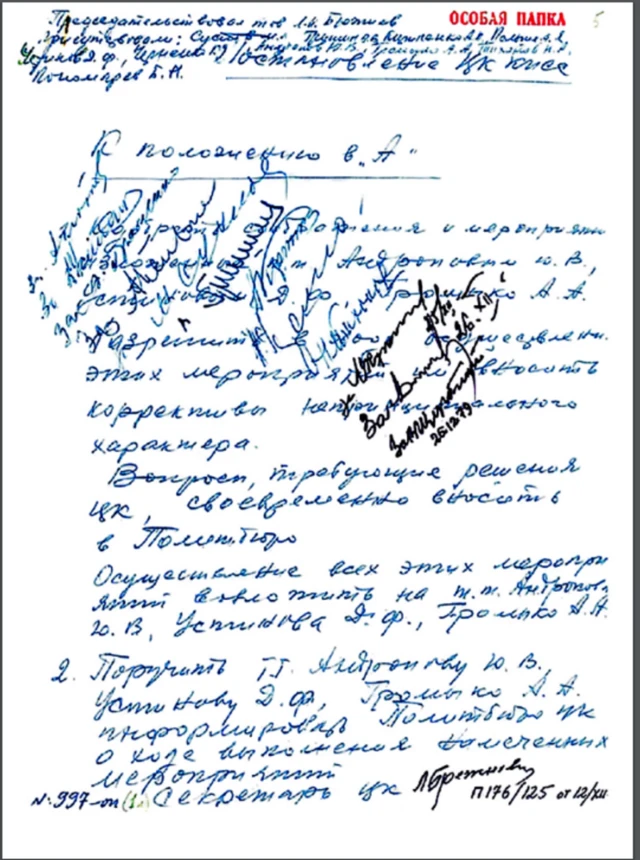 Председательствовал тов. Л.И. Брежнев
ОСОБАЯ ПАПКА
5
Присутствовали: Суслов М.А., Гришин В.В., Кириленко А.П., Пельше А.Я.,
Устинов Д.Ф., Черненко К.У., Андропов Ю.В., Громыко А.А., Тихонов Н.А.,
Пономарев Б.Н.
Постановление ЦК КПСС
К положению в "А"
и мероприятия
т. Андроповым Ю.В.,
Устиновым Д.Ф. Громыко А.А.
Разрешить в ходе осуществления
этих мероприятий им вносить
коррективы непринципиального
характера.
Вопросы, требующие решения
ЦК, своевременно вносить
в Политбюро
Осуществление всех этих меропри
ятий возложить на т.т. Андропова
Ю.В, Устинова Д.Ф., Громыко А.А.
2. Поручить тт. Андропову Ю.В.,
Устинову Д.Ф, Громыко А.А.
информировать Политбюро ЦК
о ходе выполнения намеченных
мероприятий
Секретарь ЦК Л Брежнев
№ 997-оп (1л)
П 176/125 от 12/XII
25/XII
26.XII
26.12.79